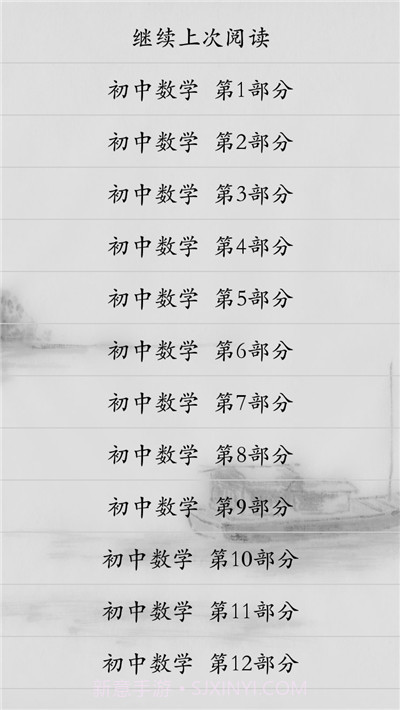 继续上次阅读
初中数学 第1部分
初中数学 第2部分
初中数学 第3部分
初中数学 第4部分
初中数学 第5部分
初中数学 第6部分
初中数学 第7部分
初中数学 第8部分
初中数学 第9部分
初中数学 第10部分
初中数学 第11部分
初中数学 第12部分
新意手游·SJXINYI.COM